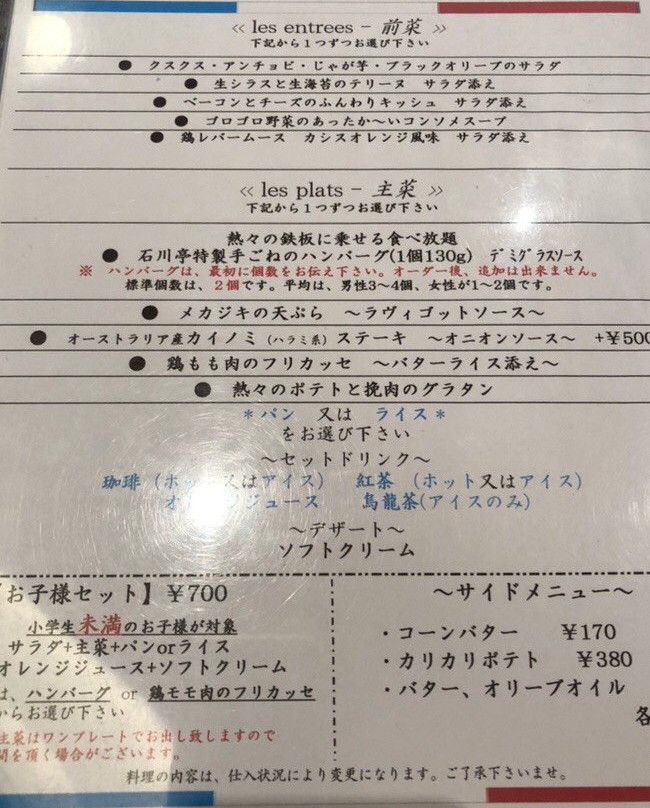 ≪ les entrees − 前菜 ≫
下記から１つずつお選び下さい
● クスクス・アンチョビ・じゃが芋・ブラックオリーブのサラダ
● 生シラスと生海苔のテリーヌ　サラダ添え
● ベーコンとチーズのふんわりキッシュ　サラダ添え
● ゴロゴロ野菜のあったか〜いコンソメスープ
● 鶏レバームース　カシスオレンジ風味　サラダ添え
≪ les plats − 主菜 ≫
下記から１つずつお選び下さい
熱々の鉄板に乗せる食べ放題
● 石川亭特製手ごねのハンバーグ(1個130g)　デミグラスソース
※　ハンバーグは、最初に個数をお伝え下さい。オーダー後、追加は出来ません。
標準個数は、２個です。平均は、男性3〜4個、女性が1〜2個です。
● メカジキの天ぷら　〜ラヴィゴットソース〜
● オーストラリア産カイノミ（ハラミ系）ステーキ　〜オニオンソース〜　+￥500
● 鶏もも肉のフリカッセ　〜バターライス添え〜
● 熱々のポテトと挽肉のグラタン
＊パン　又は　ライス＊
をお選び下さい
〜セットドリンク〜
珈琲（ホット又はアイス）　紅茶　（ホット又はアイス）
オ　ジュース　烏龍茶(アイスのみ)
〜デザート〜
ソフトクリーム
お子様セット】￥700
小学生未満のお子様が対象
サラダ+主菜+パンorライス
オレンジジュース+ソフトクリーム
は、ハンバーグ or 鶏モモ肉のフリカッセ
からお選び下さい
主菜はワンプレートでお出し致しますので
間を頂く場合がございます。
〜サイドメニュー〜
・コーンバター　￥170
・カリカリポテト　￥380
・バター、オリーブオイル
各
料理の内容は、仕入状況により変更になります。ご了承下さいませ。